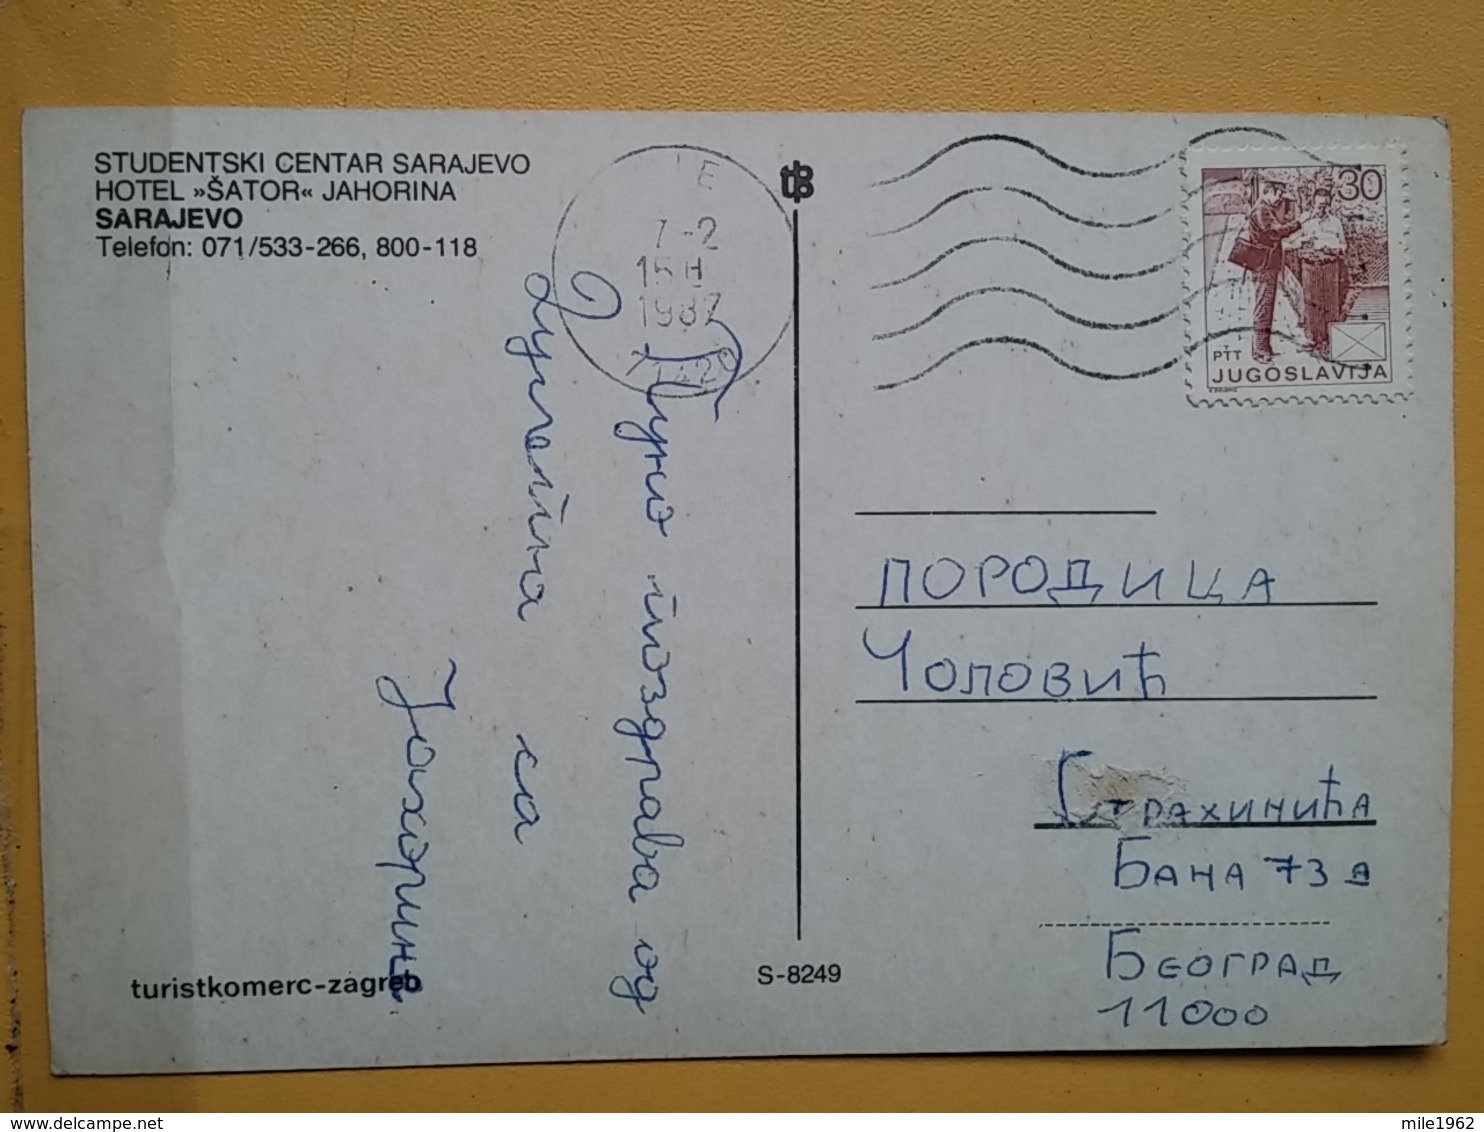 STUDENTSKI CENTAR SARAJEVO
HOTEL »ŠATOR« JAHORINA
SARAJEVO
Telefon: 071/533-266, 800-118
7-2
15H
1987
30
PTT
JUGOSLAVIJA
Пуно поздрава од
са
Јахорине
ПОРОДИЦА
Чоловић
Страхинића
Бана 73а
Београд
11000
turistkomerc-zagreb
S-8249
mile1962